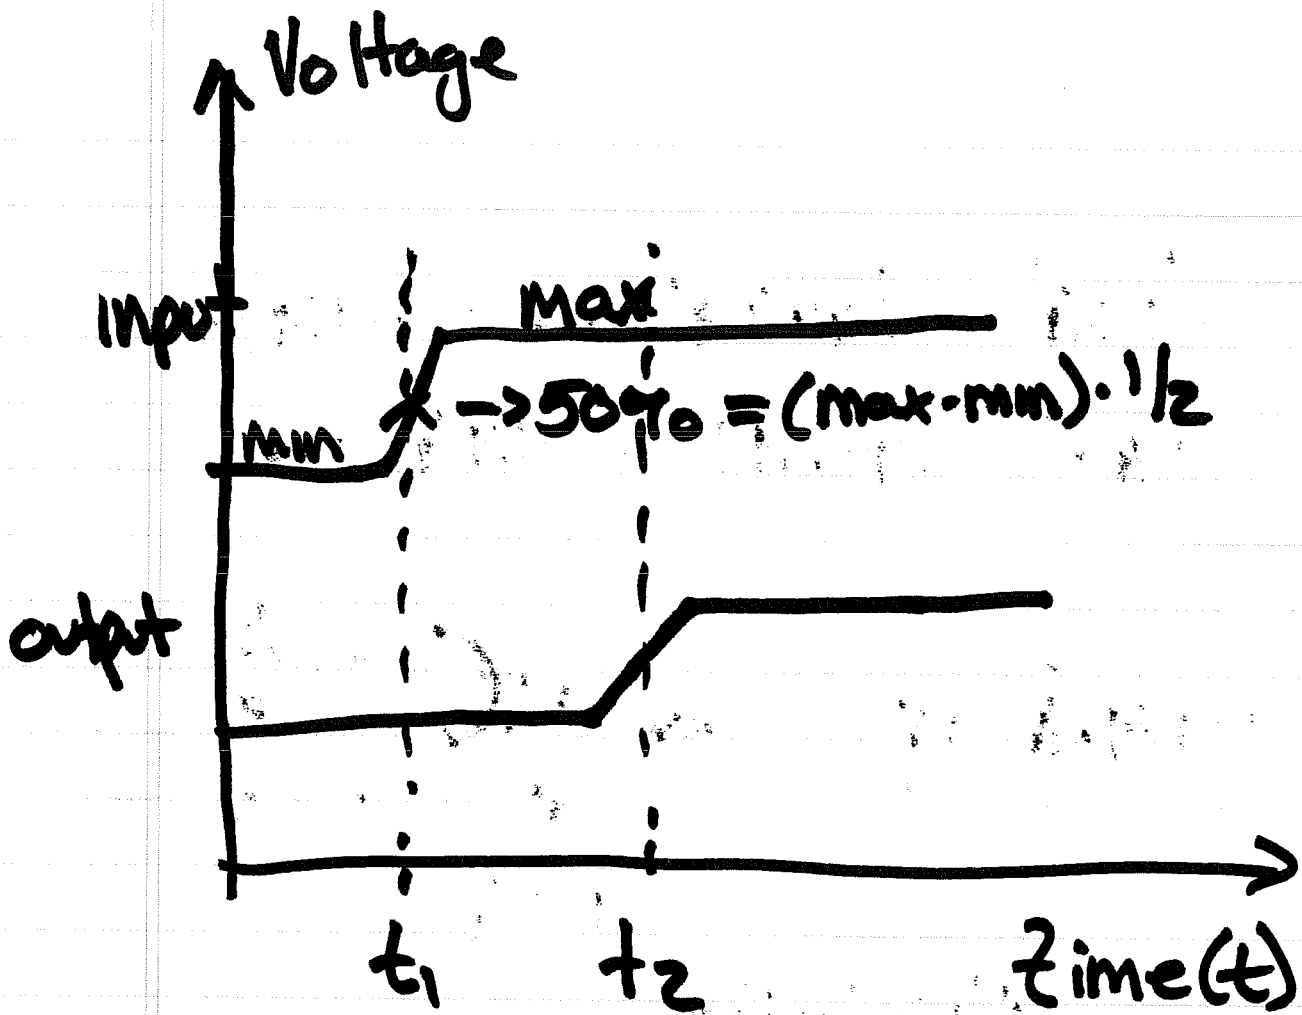 Voltage
input
max
→50% = (max-min)·1/2
min
output
t₁
t₂
time(t)